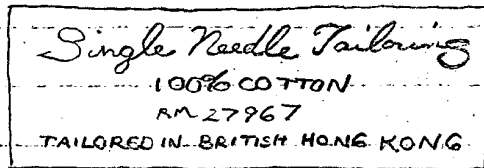 Single Needle Tailoring
100% COTTON
RN 27967
TAILORED IN BRITISH HONG KONG